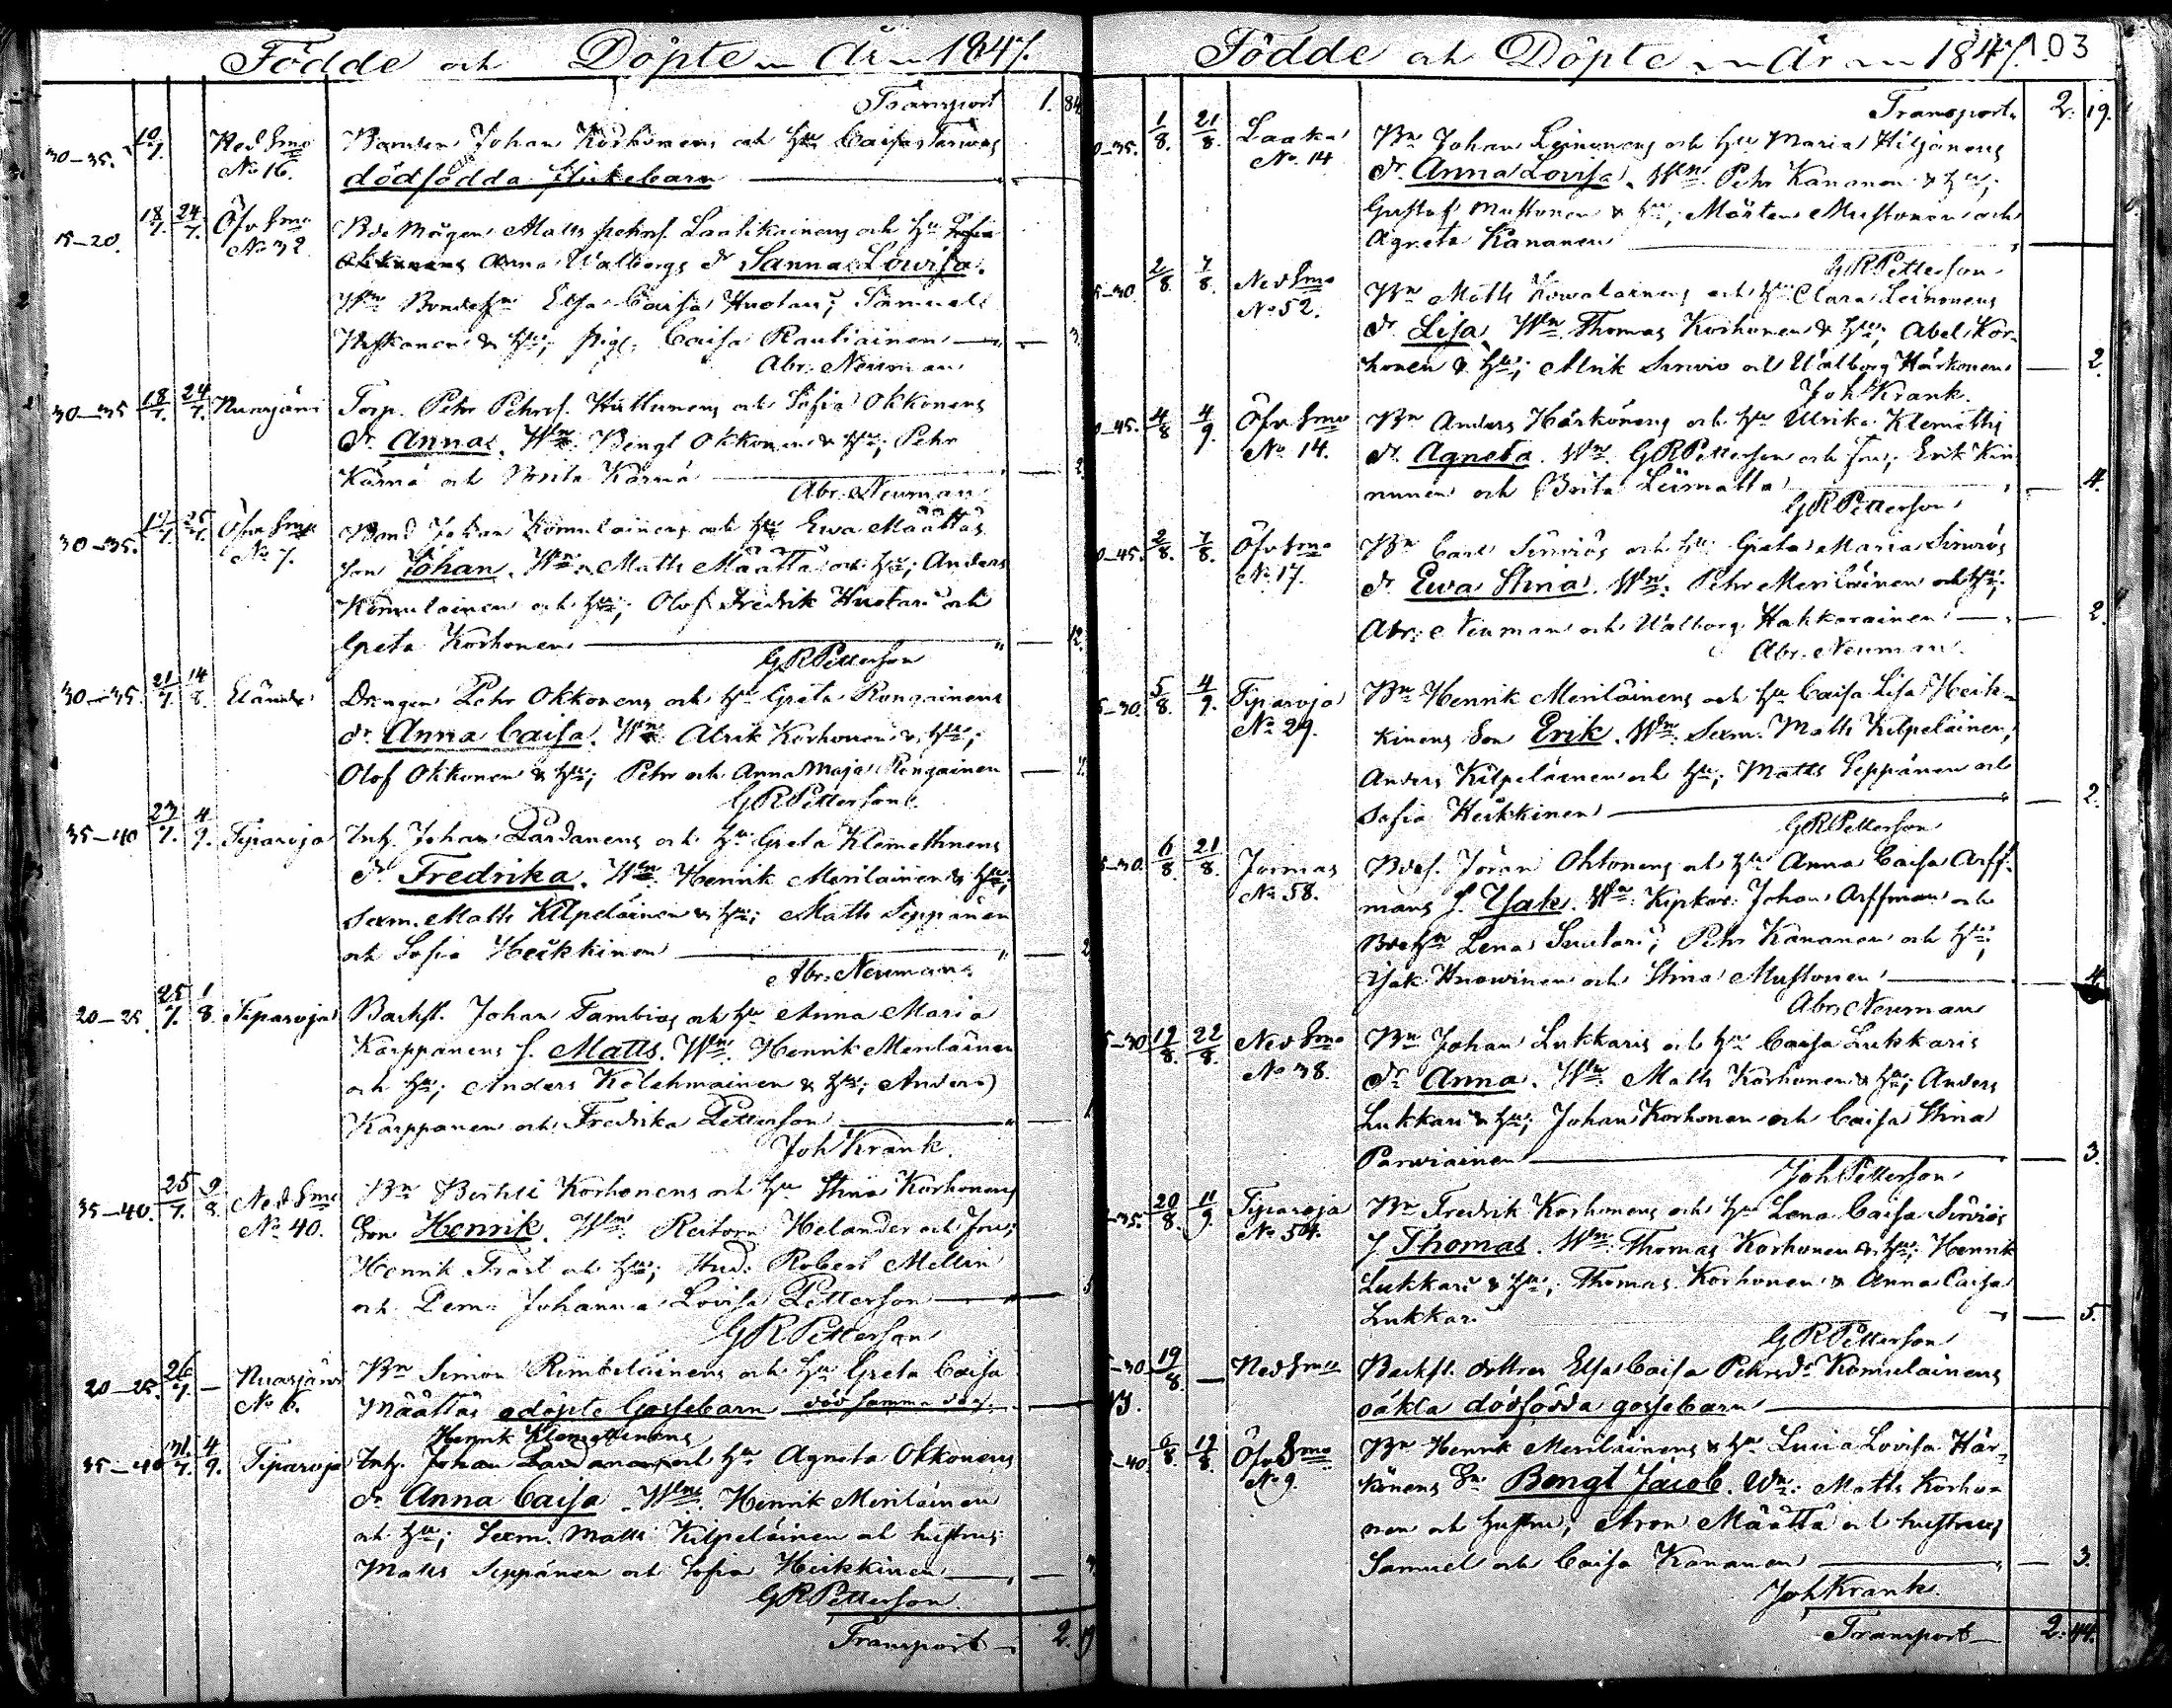 Födde och Döpte År 1847.
Transport 1. 84
30–35. 10/7. Ned Smo Bonden Johan Korhonens och Hu Caisa
No 16. dödfödda flickebarn
15–20. 18/7. 24/7. Öfv Smo Bde Mågen Matts Pehrs. Laatikainens och Hu
No 32 Anna Walborgs dr Sanna Lowisa.
Wne Bondehu Elsa Caisa Huotari; Samuel
& Hu; Pig. Caisa Rautiainen — 3
Abr. Neuman
30–35 18/7. 24/7. Nuasjärvi Torp. Pehr Pehrs. Huttunens och Sofia Okkonens
dr Anna. Wne Bengt Okkonen & Hu; Pehr
Kärnä och Brita Kärnä — 2
Abr. Neuman
30–35. 19/7. 25/7. Öfv Smo Bond Johan Komulainens och Hu Ewa Määttäs
No 7. son Johan. Wne Matts Määttä och Hu; Anders
Komulainen och Hu; Olof Fredrik Huotari och
Greta Korhonen — 12.
GRPetterson
30–35. 21/7. 14/8. Drengen Pehr Okkonens och Hu Greta Rongainens
dr Anna Caisa. Wne Alrik Korhonen & Hu;
Olof Okkonen & Hu; Pehr och Anna Maja Rongainen
GRPetterson
35–40 27/7. 4/9. Tiparoja Inh. Johan Pardanens och Hu Greta Klemettinens
dr Fredrika. Wne Henrik Meriläinen & Hu;
Sexm. Matts Kilpeläinen & Hu; Matts Seppänen
och Sofia Heikkinen — 2
Abr. Neuman
20–25. 25/7. 1/8. Tiparoja Backst. Johan Tambios och Hu Anna Maria
Karppanens s. Matts. Wne. Henrik Meriläinen
och Hu; Anders Kolehmainen & Hu; Anders
Karppanen och Fredrika Petterson — 1
Joh Krank.
35–40. 25/7. 9/8. Ned Smo Bn Bertili Korhonens och Hu Stina Korhonens
No 40. Son Henrik. Wne. Rectorn Helander och Fru;
Henrik Trast och Hu; Stud. Robert Mellin
och Dem. Johanna Lovisa Petterson — 5
GRPetterson
20–25. 26/7. — Nuasjärvi Bn Simon Rimbiläinens och Hu Greta Caisa
No 6. Määttäs odöpte Gossebarn död samma dag.
Henrik Klemettinens
35–40 31/7. 4/9. Tiparoja Inh. Johan Pardanens och Hu Agneta Okkonens
dr Anna Caisa. Wne. Henrik Meriläinen
och Hu; Sexm. Matts Kilpeläinen och hustru;
Matts Seppänen och Sofia Heikkinen
GRPetterson.
Transport 2. 19
Födde och Döpte År 1847. 103
Transport 2. 19.
1/8. 21/8. Laaka Bn Johan Leinonens och Hu Maria Hiljanens
No 14 dr Anna Lovisa. Wne Pehr Kananen & Hu;
Gustaf Mustonen & Hu; Mårten Mustonen och
Agneta Kananen
GRPetterson
2/8. 7/8. Ned Smo Bn Matts Kowalainens och Hu Clara Leinonens
No 52. dr Lisa. Wne Thomas Korhonen & Hu; Abel Kor-
honen & Hu; Alrik Sirvio och Walborg Härkönen — 2.
Joh Krank.
4/8 4/9. Öfv Smo Bn Anders Härkönens och Hu Ulrika Klemettis
No 14. dr Agneta. Wne. GRPetterson och Fru; Erik Kin-
nunen och Brita Leimatta — 4.
GRPetterson
2/8. 7/8. Öfv Smo Bn Carl Sirviös och Hu Greta Maria Sirviös
No 17. dr Ewa Stina. Wne. Pehr Meriläinen och Hu;
Abr. Neuman och Walborg Hakkarainen — 2.
Abr. Neuman.
5/8. 4/9. Tiparoja Bn Henrik Meriläinens och Hu Caisa Lisa Heik-
No 29. kinens Son Erik. Wne. Sexm. Matts Kilpeläinen;
Anders Kilpeläinen och Hu; Matts Seppänen och
Sofia Heikkinen — 2.
GRPetterson
6/8. 21/8. Jormas Bdes. Jöran Ohtonens och Hu Anna Caisa Arff-
No 58. mans s. Isak. Wne. Johan Arffman och
Bdehu Lena Suutari; Pehr Kananen och Hu;
Isak Huowinen och Stina Mustonen — 4
Abr. Neuman
19/8. 22/8. Ned Smo Bn Johan Lukkaris och Hu Caisa Lukkaris
No 38. dr Anna. Wne. Matts Korhonen & Hu; Anders
Lukkari & Hu; Johan Korhonen och Caisa Stina
Parviainen — 3.
Joh Petterson
20/8. 11/9. Tiparoja Bn Fredrik Korhonens och Hu Lena Caisa Sirviös
No 54. s Thomas. Wne. Thomas Korhonen & Hu; Henrik
Lukkari & Hu; Thomas Korhonen & Anna Caisa
Lukkari — 5.
GRPetterson
19/8. — Ned Smo Backst. dottren Elsa Caisa Pehrsdr Komulainens
oäkta dödfödda gossebarn
6/8. 19/8. Öfv Smo Bn Henrik Meriläinens & Hu Lucia Lovisa Här-
No 9. könens Sn Bengt Jacob. Wne. Matts Korho-
nen och hustru; Aron Määttä och hustru;
Samuel och Caisa Kananen — 3.
Joh Krank.
Transport 2. 44.